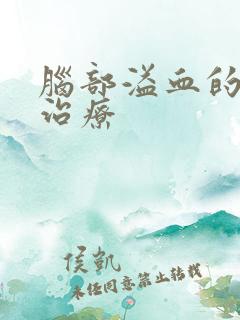 腦部溢血的
治療
侯凱
未經同意禁止轉載